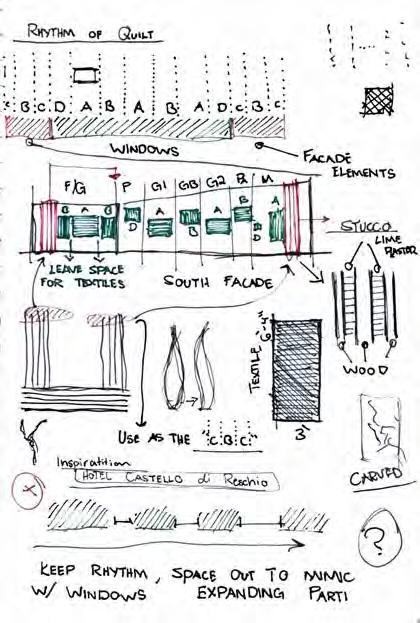 RHYTHM OF QUILT
C B C D A B A B A D C B C
WINDOWS
FACADE
ELEMENTS
F/G P G1 GB G2 P2 M
B A B D A B A B D A
LEAVE SPACE
FOR TEXTILES
SOUTH FACADE
STUCCO
LIME
PLASTER
WOOD
TEXTILE
6'-4"
3'
USE AS THE "C B C"
Inspiratition
HOTEL CASTELLO di Reschio
CARVED
X
?
KEEP RHYTHM, SPACE OUT TO MIMIC
W/ WINDOWS EXPANDING PARTI